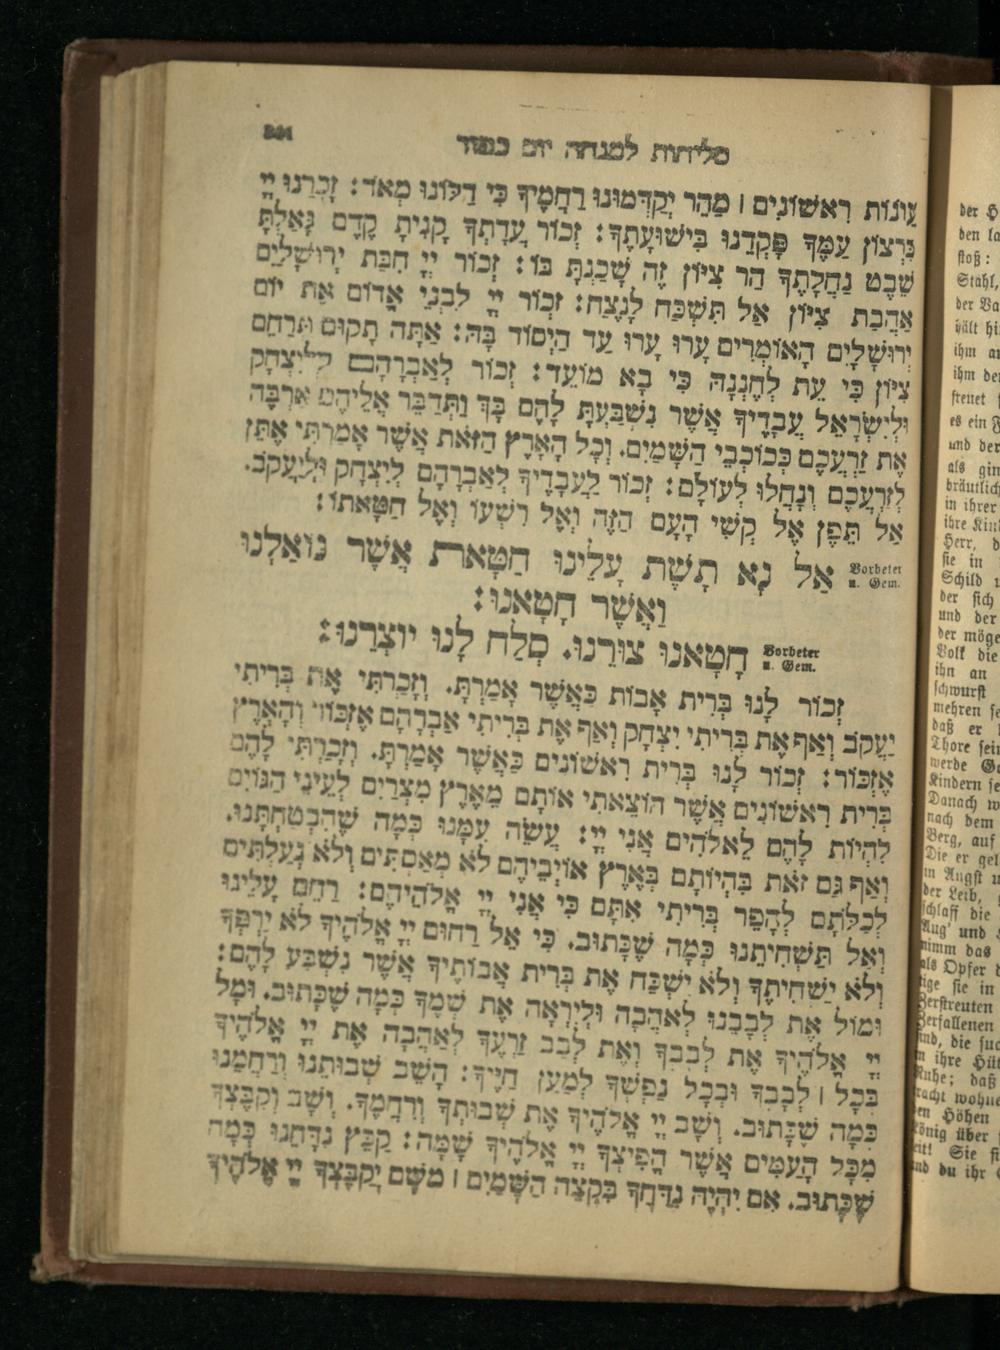 סליחות למנחה יום כפור
עֲוֹנוֹת רִאשׁוֹנִים ׀ מַהֵר יְקַדְּמוּנוּ רַחֲמֶיךָ כִּי דַלּוֹנוּ מְאֹד: זָכְרֵנוּ יְיָ
בִּרְצוֹן עַמֶּךָ פָּקְדֵנוּ בִּישׁוּעָתֶךָ: זְכוֹר עֲדָתְךָ קָנִיתָ קֶדֶם גָּאַלְתָּ
שֵׁבֶט נַחֲלָתֶךָ הַר צִיּוֹן זֶה שָׁכַנְתָּ בּוֹ: זְכוֹר יְיָ חִבַּת יְרוּשָׁלָיִם
אַהֲבַת צִיּוֹן אַל תִּשְׁכַּח לָנֶצַח: זְכוֹר יְיָ לִבְנֵי אֱדוֹם אֵת יוֹם
יְרוּשָׁלָיִם הָאוֹמְרִים עָרוּ עָרוּ עַד הַיְסוֹד בָּהּ: אַתָּה תָקוּם תְּרַחֵם
צִיּוֹן כִּי עֵת לְחֶנְנָהּ כִּי בָא מוֹעֵד: זְכוֹר לְאַבְרָהָם לְיִצְחָק
וּלְיִשְׂרָאֵל עֲבָדֶיךָ אֲשֶׁר נִשְׁבַּעְתָּ לָהֶם בָּךְ וַתְּדַבֵּר אֲלֵיהֶם אַרְבֶּה
אֶת זַרְעֲכֶם כְּכוֹכְבֵי הַשָּׁמַיִם. וְכָל הָאָרֶץ הַזֹּאת אֲשֶׁר אָמַרְתִּי אֶתֵּן
לְזַרְעֲכֶם וְנָחֲלוּ לְעוֹלָם: זְכוֹר לַעֲבָדֶיךָ לְאַבְרָהָם לְיִצְחָק וּלְיַעֲקֹב.
אַל תֵּפֶן אֶל קְשִׁי הָעָם הַזֶּה וְאֶל רִשְׁעוֹ וְאֶל חַטָּאתוֹ:
Vorbeter u. Gem. אַל נָא תָשֵׁת עָלֵינוּ חַטָּאת אֲשֶׁר נוֹאַלְנוּ
וַאֲשֶׁר חָטָאנוּ:
Vorbeter u. Gem. חָטָאנוּ צוּרֵנוּ. סְלַח לָנוּ יוֹצְרֵנוּ:
זְכוֹר לָנוּ בְּרִית אָבוֹת כַּאֲשֶׁר אָמַרְתָּ. וְזָכַרְתִּי אֶת בְּרִיתִי
יַעֲקֹב וְאַף אֶת בְּרִיתִי יִצְחָק וְאַף אֶת בְּרִיתִי אַבְרָהָם אֶזְכּוֹר וְהָאָרֶץ
אֶזְכּוֹר: זְכוֹר לָנוּ בְּרִית רִאשׁוֹנִים כַּאֲשֶׁר אָמַרְתָּ. וְזָכַרְתִּי לָהֶם
בְּרִית רִאשׁוֹנִים אֲשֶׁר הוֹצֵאתִי אוֹתָם מֵאֶרֶץ מִצְרַיִם לְעֵינֵי הַגּוֹיִם
לִהְיוֹת לָהֶם לֵאלֹהִים אֲנִי יְיָ: עֲשֵׂה עִמָּנוּ כְּמָה שֶׁהִבְטַחְתָּנוּ.
וְאַף גַּם זֹאת בִּהְיוֹתָם בְּאֶרֶץ אוֹיְבֵיהֶם לֹא מְאַסְתִּים וְלֹא גְעַלְתִּים
לְכַלֹּתָם לְהָפֵר בְּרִיתִי אִתָּם כִּי אֲנִי יְיָ אֱלֹהֵיהֶם: רַחֵם עָלֵינוּ
וְאַל תַּשְׁחִיתֵנוּ כְּמָה שֶׁכָּתוּב. כִּי אֵל רַחוּם יְיָ אֱלֹהֶיךָ לֹא יַרְפְּךָ
וְלֹא יַשְׁחִיתֶךָ וְלֹא יִשְׁכַּח אֶת בְּרִית אֲבוֹתֶיךָ אֲשֶׁר נִשְׁבַּע לָהֶם:
וּמוֹל אֶת לְבָבֵנוּ לְאַהֲבָה וּלְיִרְאָה אֶת שְׁמֶךָ כְּמָה שֶׁכָּתוּב. וּמָל
יְיָ אֱלֹהֶיךָ אֶת לְבָבְךָ וְאֶת לְבַב זַרְעֶךָ לְאַהֲבָה אֶת יְיָ אֱלֹהֶיךָ
בְּכָל ׀ לְבָבְךָ וּבְכָל נַפְשְׁךָ לְמַעַן חַיֶּיךָ: הָשֵׁב שְׁבוּתֵנוּ וְרַחֲמֵנוּ
כְּמָה שֶׁכָּתוּב. וְשָׁב יְיָ אֱלֹהֶיךָ אֶת שְׁבוּתְךָ וְרִחֲמֶךָ. וְשָׁב וְקִבֶּצְךָ
מִכָּל הָעַמִּים אֲשֶׁר הֱפִיצְךָ יְיָ אֱלֹהֶיךָ שָׁמָּה: קַבֵּץ נִדָּחֵנוּ כְּמָה
שֶׁכָּתוּב. אִם יִהְיֶה נִדַּחֲךָ בִּקְצֵה הַשָּׁמַיִם ׀ מִשָּׁם יְקַבֶּצְךָ יְיָ אֱלֹהֶיךָ
der
den
stoß:
Stahl,
der
hält
ihm
ihm
es ein
und der
als
in ihrer
ihre
Herr,
sie in
Schild
der sich
und der
der möge
Volk die
ihn an
schwurst
mehren
daß er
Thore
werde
Kindern
Danach
nach dem
Berg, auf
Die er
in Angst
der Leib,
schlaff die
Aug' und
nimm das
als Opfer
sie in
Zerstreuten
Zerfallenen
ind, die
ihre
Ruhe; daß
wohne
Höhen
König über
Sie
und du ihr